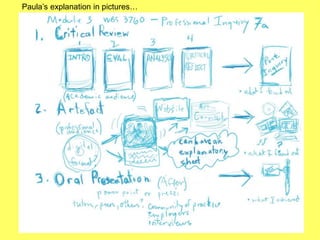 Paula's explanation in pictures…
Module 3 WBS 3760 — Professional Inquiry 7a
1. Critical Review
1 2 3 4
INTRO
EVAL
ANALYSIS
CRITICAL
REPORT
(Academic audience)
2. Artefact
(professional
audience)
Website
digital
format
can be an
explanatory
sheet
3. Oral Presentation (After)
power point or prezi
tutors, peers, others? Community of practice
employers
interviews